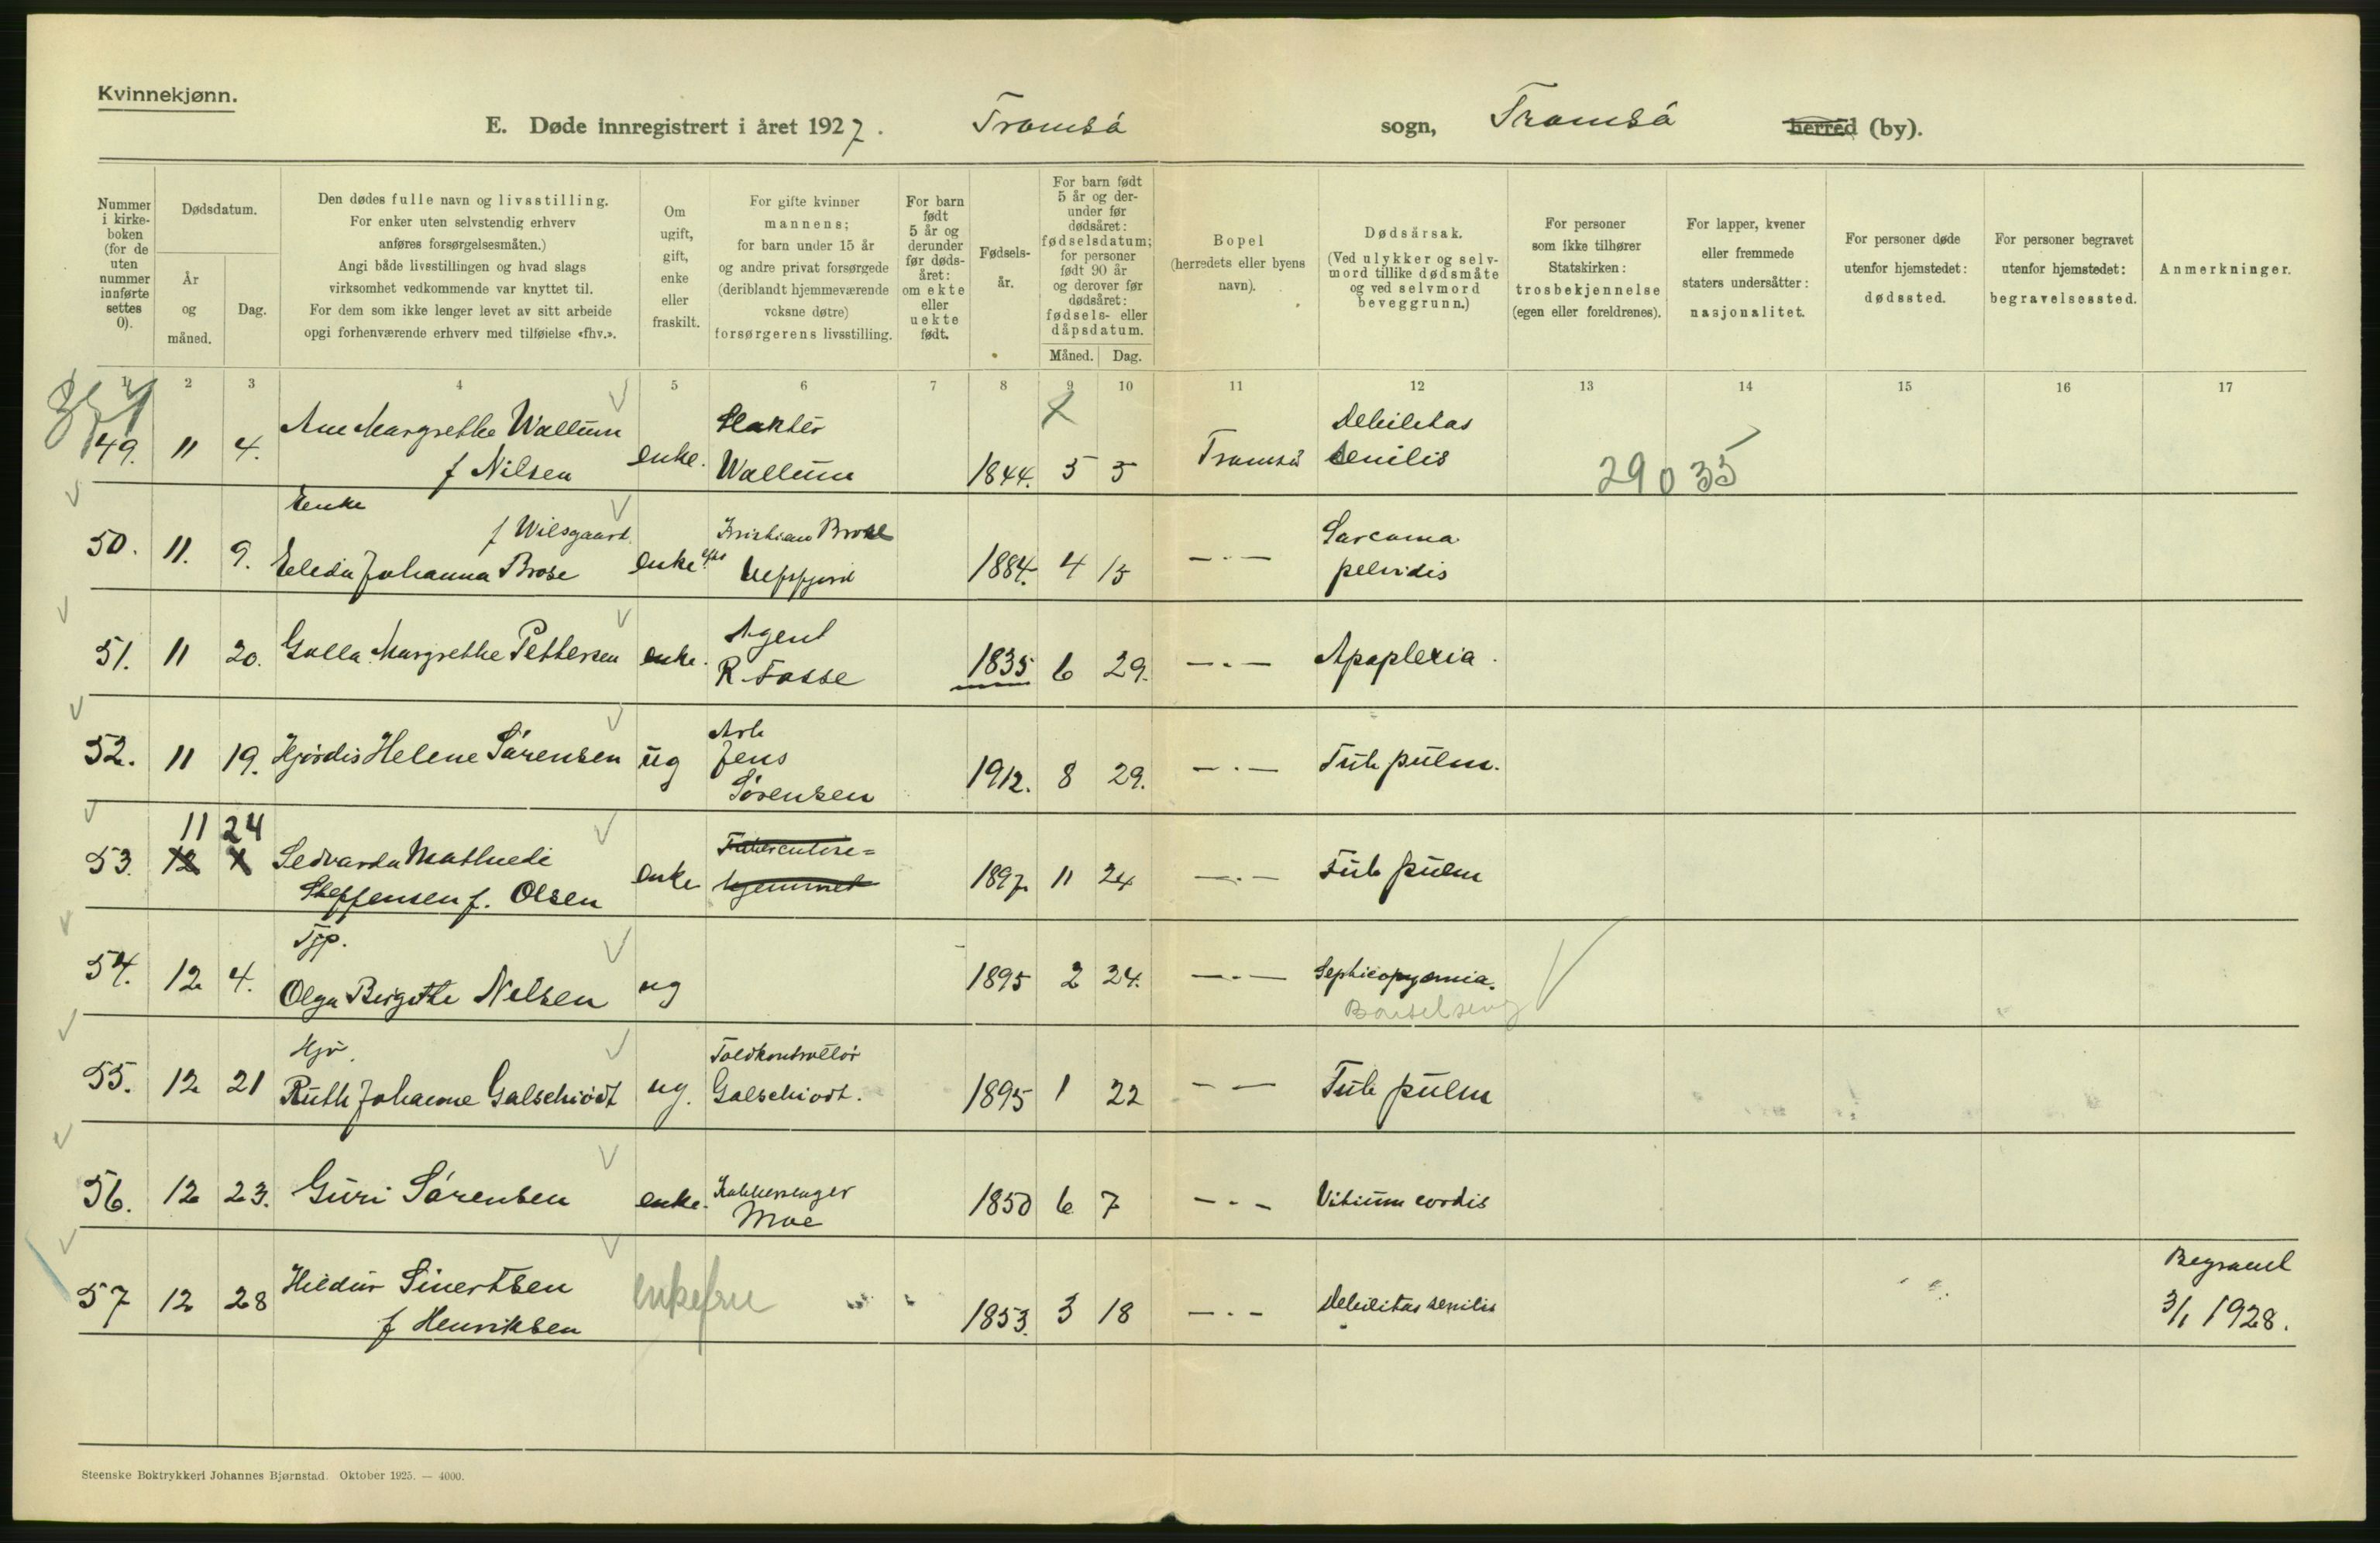 Kvinnekjønn.
E. Døde innregistrert i året 1927. Tromsø sogn, Tromsø herred (by).
Nummer i kirke-boken (for de uten nummer innførte settes 0).
Dødsdatum.
År og måned.
Dag.
Den dødes fulle navn og livsstilling.
For enker uten selvstendig erhverv
anføres forsørgelsesmåten.)
Angi både livsstillingen og hvad slags
virksomhet vedkommende var knyttet til.
For dem som ikke lenger levet av sitt arbeide
opgi forhenværende erhverv med tilføielse «fhv.».
Om ugift, gift, enke eller fraskilt.
For gifte kvinner
mannens;
for barn under 15 år
og andre privat forsørgede
(deriblandt hjemmeværende
voksne døtre)
forsørgerens livsstilling.
For barn født 5 år og derunder før døds-året: om ekte eller uekte født.
Fødsels-år.
For barn født 5 år og der-under før dødsåret: fødselsdatum; for personer født 90 år og derover før dødsåret: fødsels- eller dåpsdatum.
Måned. Dag.
Bopel
(herredets eller byens
navn).
Dødsårsak.
(Ved ulykker og selv-
mord tillike dødsmåte
og ved selvmord
beveggrunn.)
For personer
som ikke tilhører
Statskirken:
trosbekjennelse
(egen eller foreldrenes).
For lapper, kvener
eller fremmede
staters undersåtter:
nasjonalitet.
For personer døde
utenfor hjemstedet:
dødssted.
For personer begravet
utenfor hjemstedet:
begravelsessted.
Anmerkninger.
1 2 3 4 5 6 7 8 9 10 11 12 13 14 15 16 17
49. 11 4. Ane Margrethe Wallum f Nilsen enke. Slakter Wallum 1844. 5 5 Tromsø Debilitas senilis
29035
50. 11. 9. Enke f Wilsgaard Elida Johanna Brose enke efter Kristian Brose 1884. 4 15 —·— Sarcoma pelvidis
51. 11 20. Galla Margrethe Pettersen enke. Agent R. Fosse 1835 6 29. —·— Apoplexia.
52. 11 19. Hjørdis Helene Sørensen ug Arb Jens Sørensen 1912. 8 29. —·— Tub pulm.
11 24
53. 12 1 Sedvarda Mathildi Steffensen f. Olsen enke Tuberculose= hjemmet 1897. 11 24 —·— Tub pulm
54. 12 4. Tjp. Olga Birgitte Nilsen ug 1895 2 24. —·— Septicopyæmia.
Barselseng
55. 12 21 Hjv. Ruth Johanne Galschiødt ug. Toldkontrollør Galschiødt. 1895 1 22 — — Tub pulm
56. 12 23. Guri Sørensen enke. Moe 1850 6 7 —·— Vitium cordis
57 12 28 Hildur Sivertsen f Henriksen enkefru 1853. 3 18 —·— Debilitas senilis Begravet 3/1 1928.
Steenske Boktrykkeri Johannes Bjørnstad. Oktober 1925. — 4000.